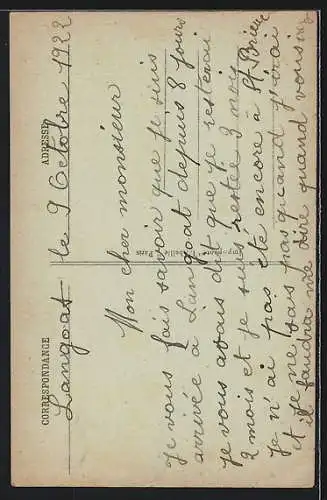 CORRESPONDANCE
ADRESSE
Langoat le 9 Octobre 1922
Mon cher monsieur
Je vous fais savoir que je suis
arrivée à Langoat depuis 8 jours
Je vous avais dit que je resterai
2 mois et je suis restée 3 mois
Je n'ai pas été encore à St Brieuc
et je ne sais pas quand j'irai
il faudra me dire quand vous
Abeille Paris